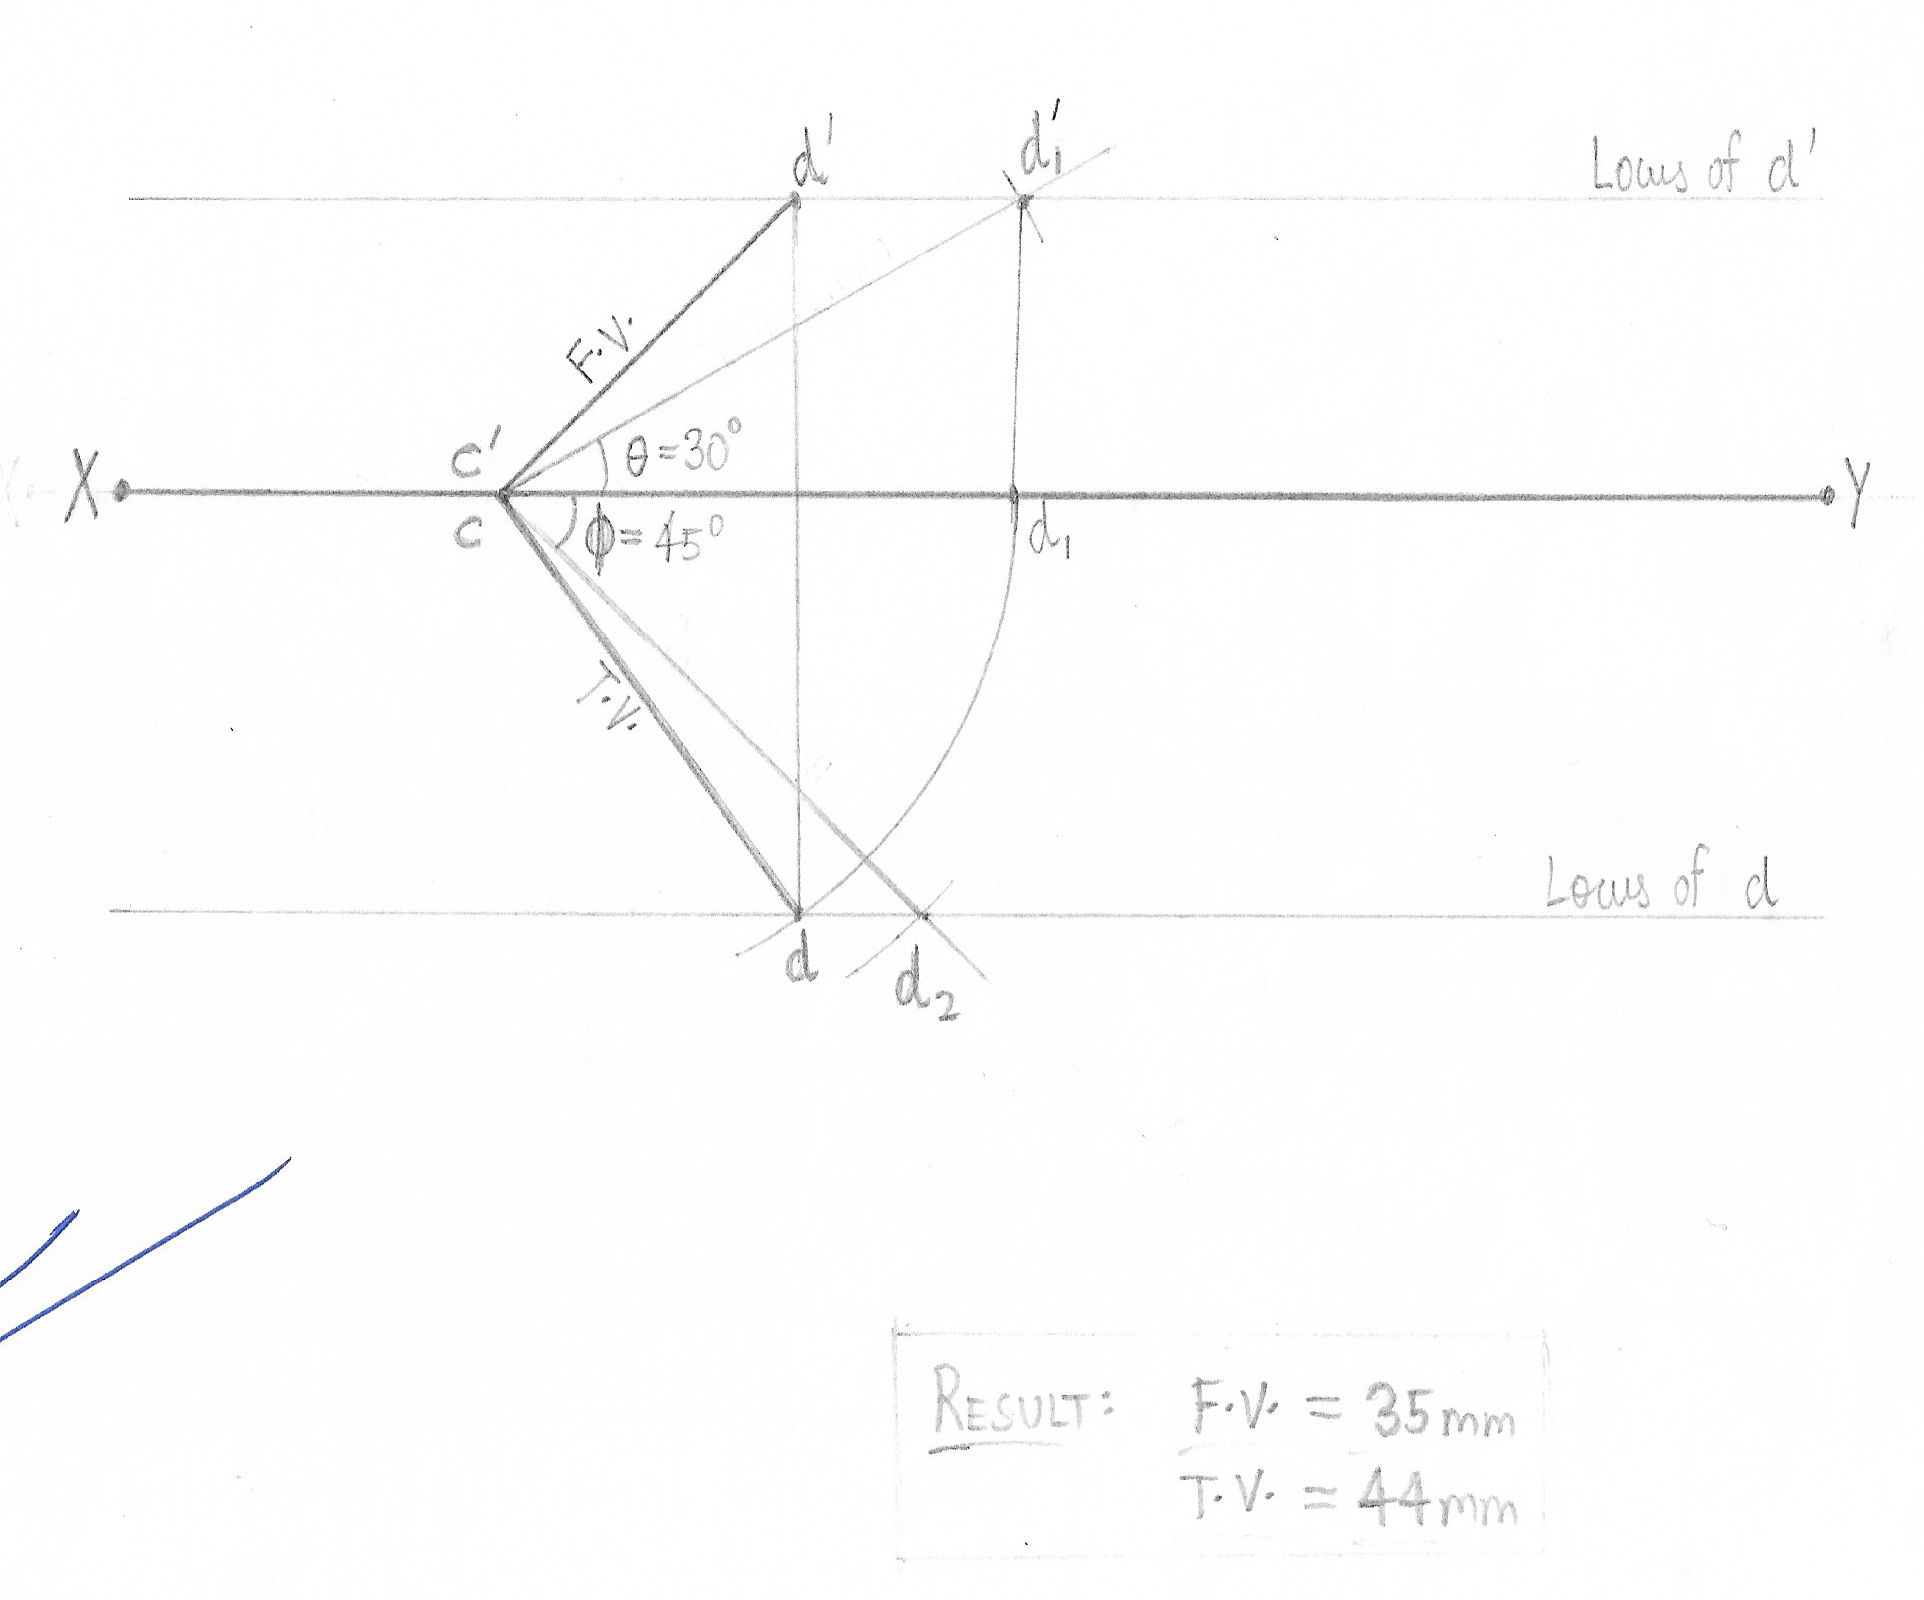 d'
d₁'
Locus of d'
F.V.
c'
θ=30°
X
Y
c
ϕ=45°
d₁
T.V.
Locus of d
d
d₂
RESULT: F.V. = 35mm
T.V. = 44mm